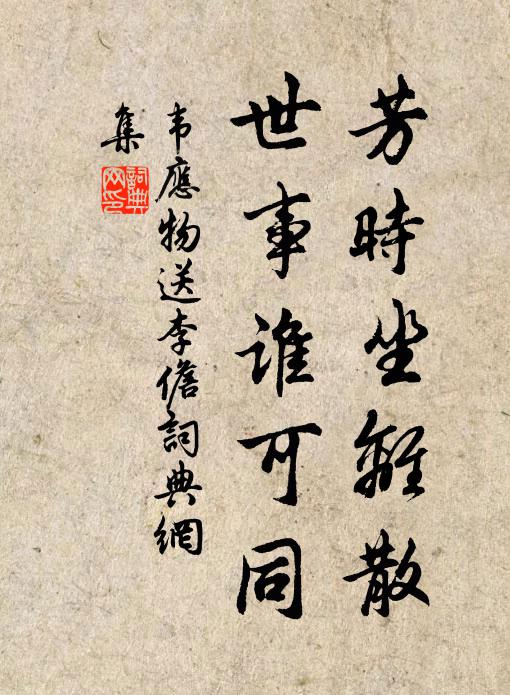 芳時坐離散
世事誰可同
韦應物送李儋詞典網
集
詞典
网印